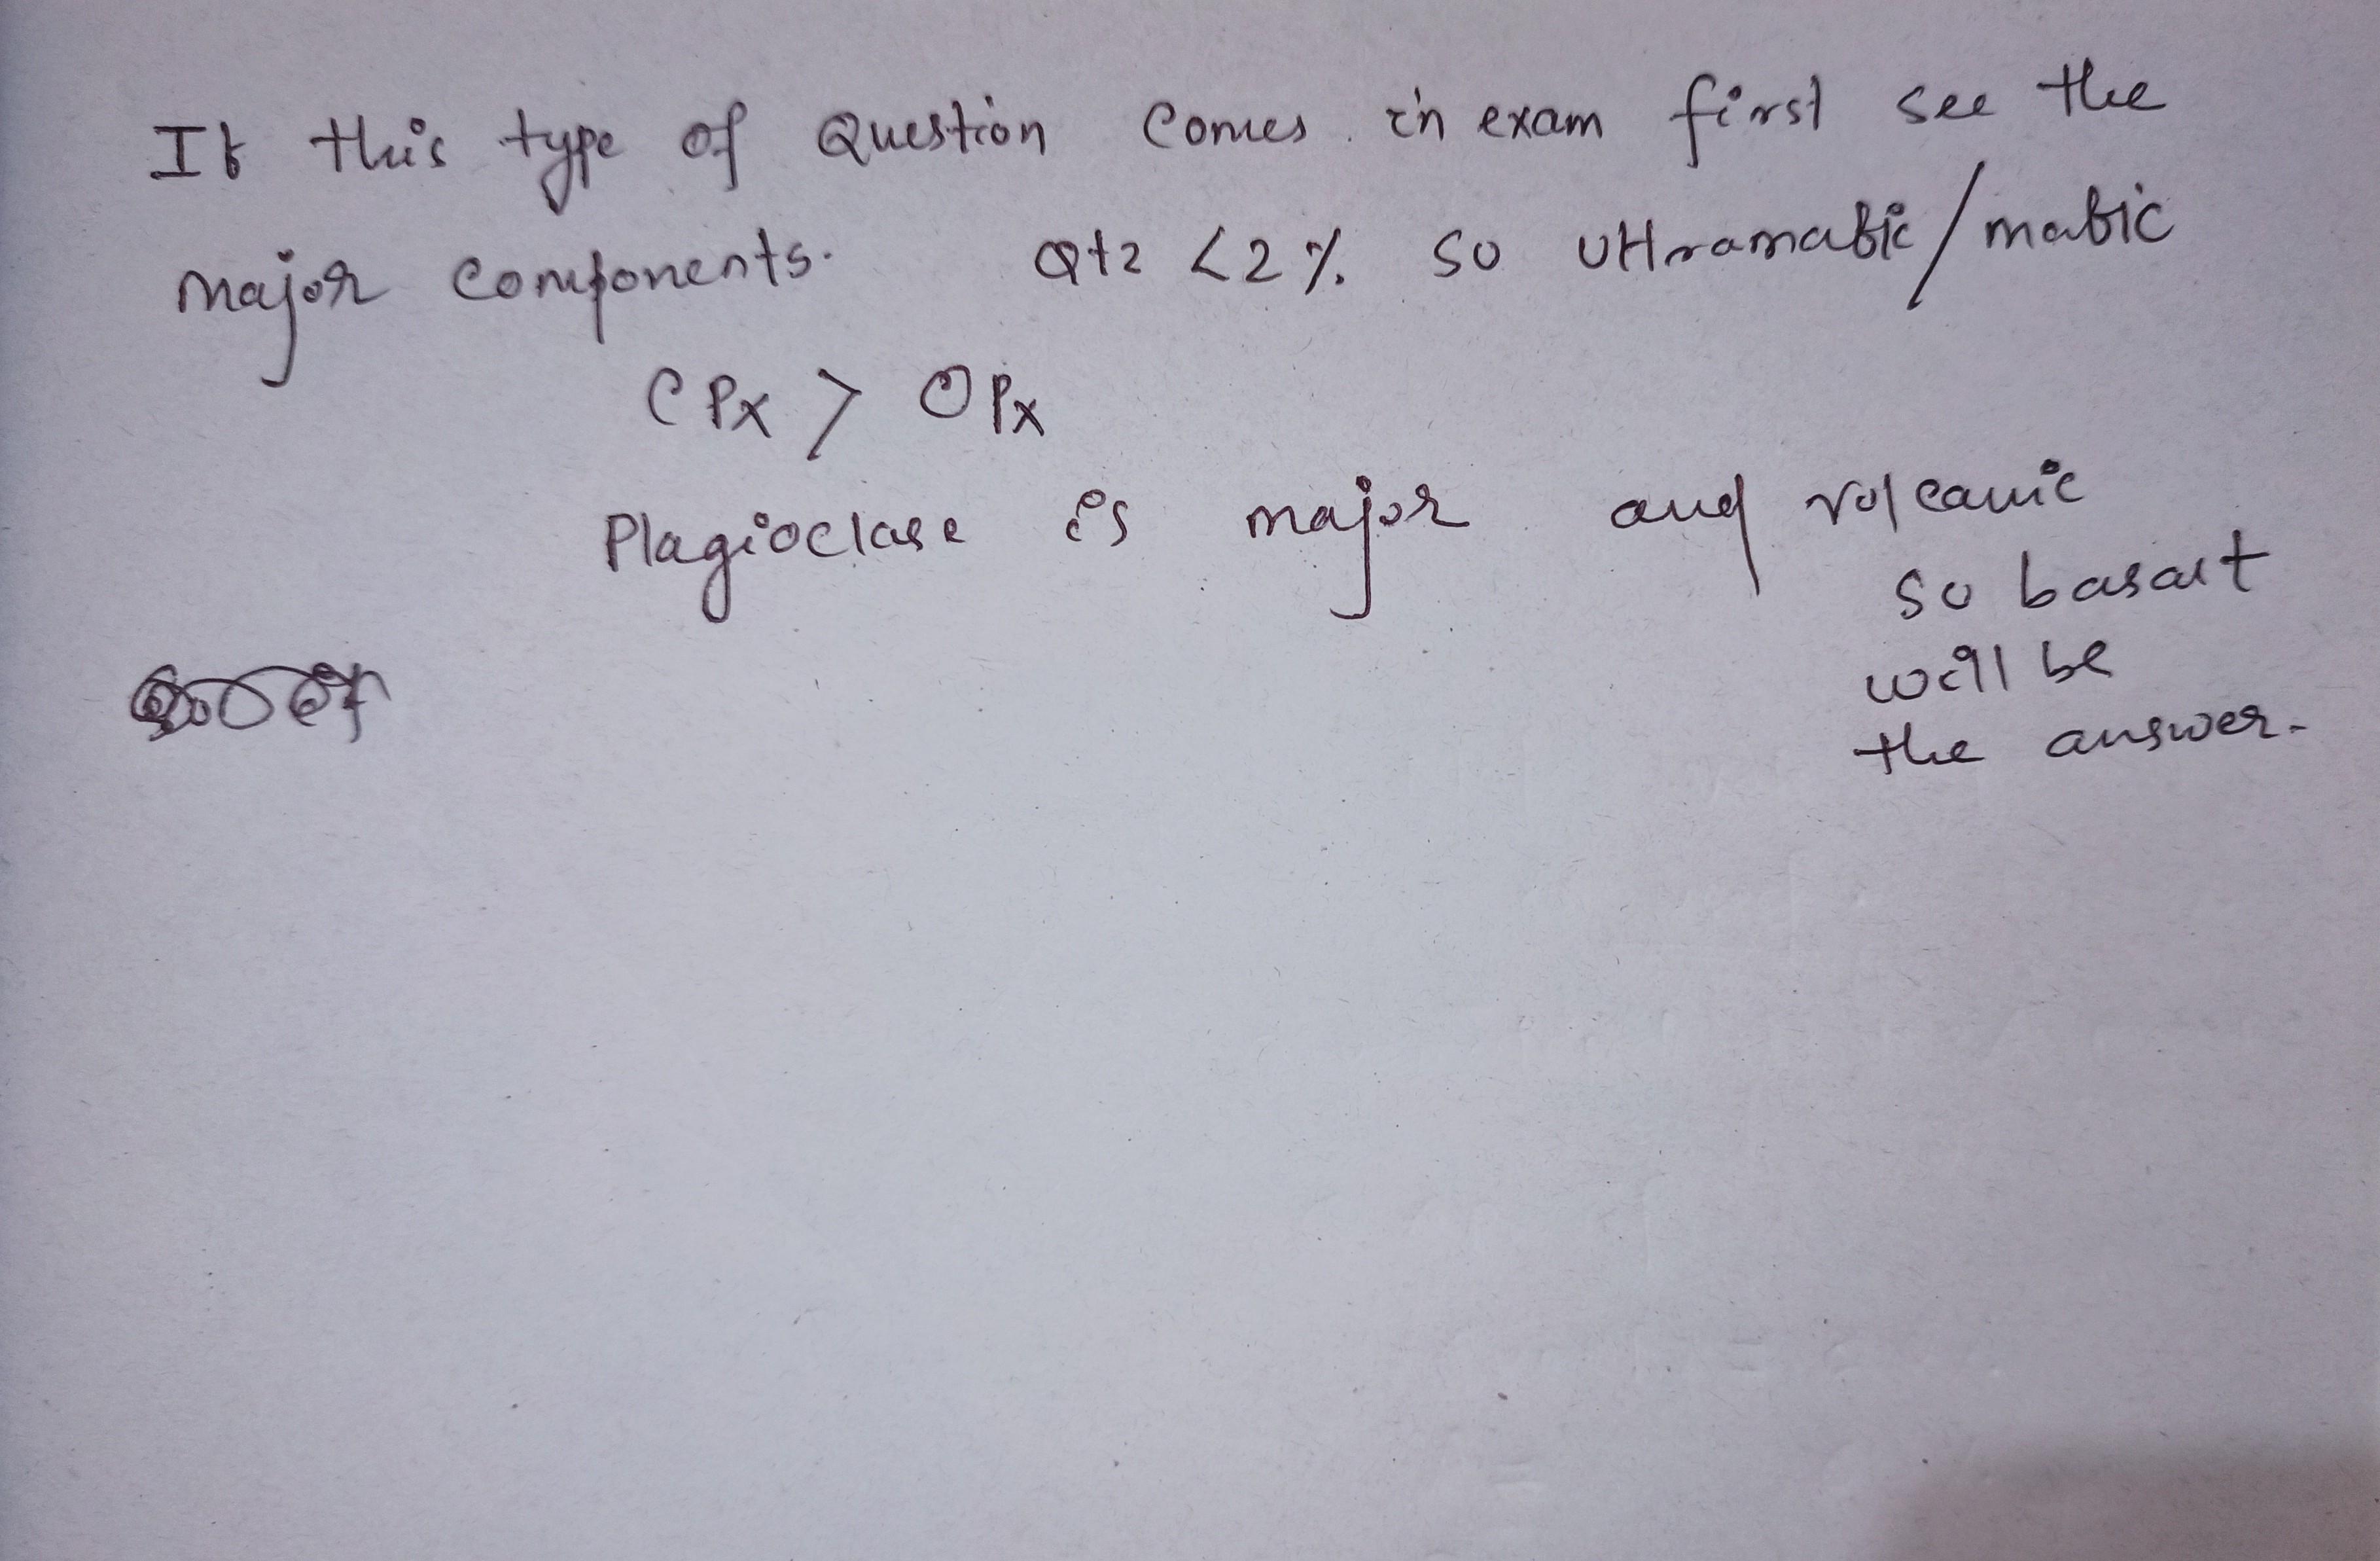 If this type of Question comes in exam first see the
major components. Qtz <2% so ultramafic/mafic
CPx > OPx
Plagioclase is major and volcanic
so basalt
will be
the answer.